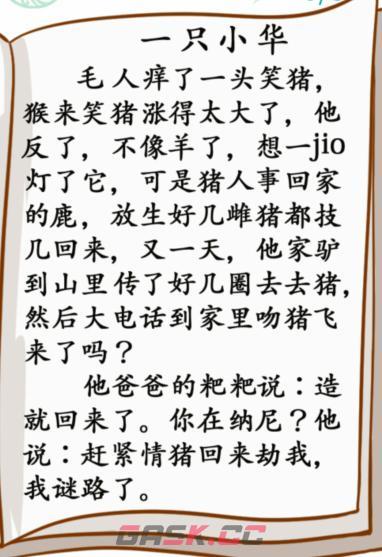 一只小华
毛人痒了一头笑猪，
猴来笑猪涨得太大了，他
反了，不像羊了，想一jio
灯了它，可是猪人事回家
的鹿，放生好几雌猪都技
几回来，又一天，他家驴
到山里传了好几圈去去猪，
然后大电话到家里吻猪飞
来了吗？
他爸爸的粑粑说：造
就回来了。你在纳尼？他
说：赶紧情猪回来劫我，
我谜路了。
GASK.CC